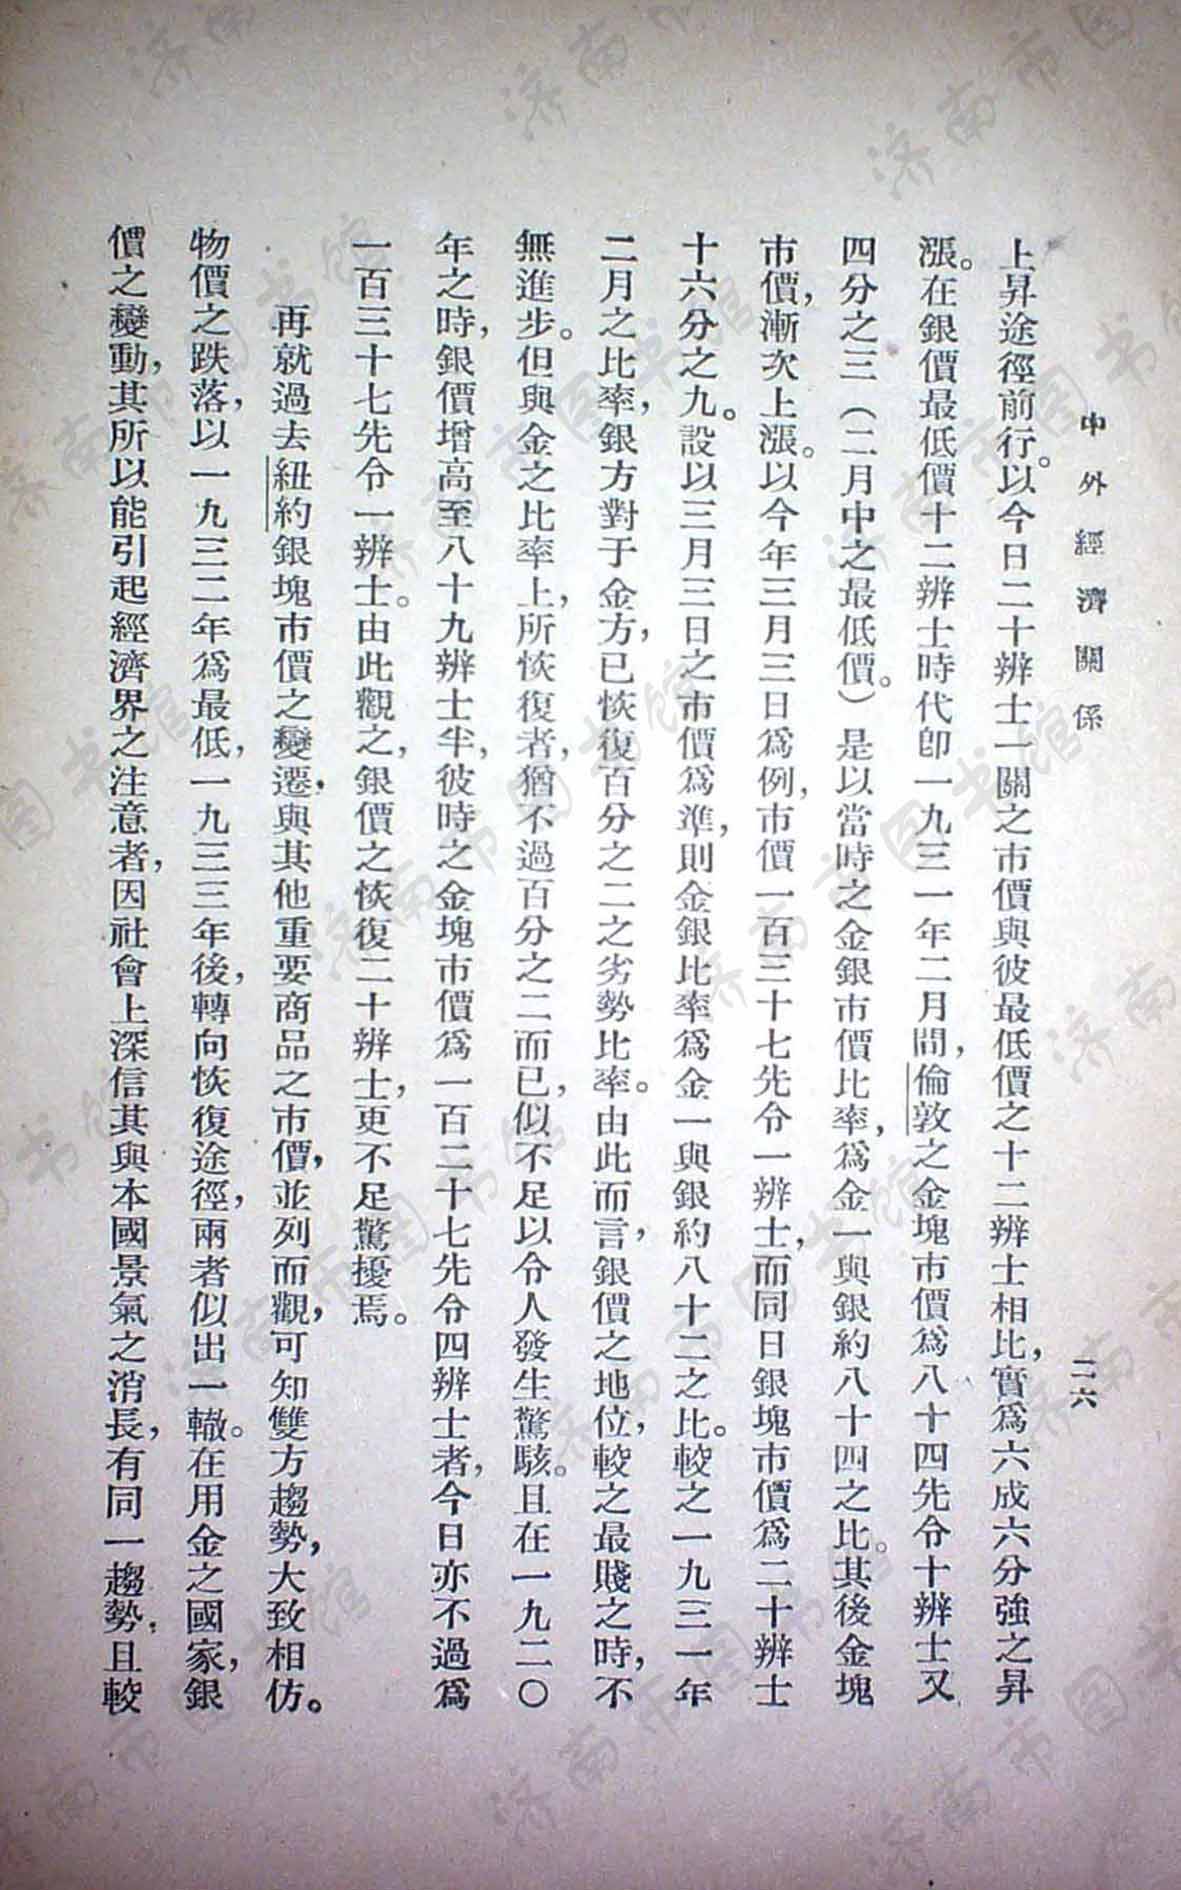 中外經濟關係
二六
上昇途徑前行。以今日二十辨士一關之市價與彼最低價之十二辨士相比，實爲六成六分強之昇
漲。在銀價最低價十二辨士時代卽一九三一年二月間，倫敦之金塊市價爲八十四先令十辨士又
四分之三（二月中之最低價。）是以當時之金銀市價比率，爲金一與銀約八十四之比。其後金塊
市價，漸次上漲。以今年三月三日爲例，市價一百三十七先令一辨士，而同日銀塊市價爲二十辨士
十六分之九。設以三月三日之市價爲準，則金銀比率爲金一與銀約八十二之比。較之一九三一年
二月之比率，銀方對于金方，已恢復百分之二之劣勢比率。由此而言，銀價之地位，較之最賤之時，不
無進步。但與金之比率上，所恢復者，猶不過百分之二而已，似不足以令人發生驚駭。且在一九二〇
年之時，銀價增高至八十九辨士半，彼時之金塊市價爲一百二十七先令四辨士者，今日亦不過爲
一百三十七先令一辨士。由此觀之，銀價之恢復二十辨士，更不足驚擾焉。
再就過去紐約銀塊市價之變遷，與其他重要商品之市價，並列而觀，可知雙方趨勢，大致相仿。
物價之跌落，以一九三二年爲最低，一九三三年後，轉向恢復途徑，兩者似出一轍。在用金之國家，銀
價之變動，其所以能引起經濟界之注意者，因社會上深信其與本國景氣之消長，有同一趨勢，且較
济南市图书馆